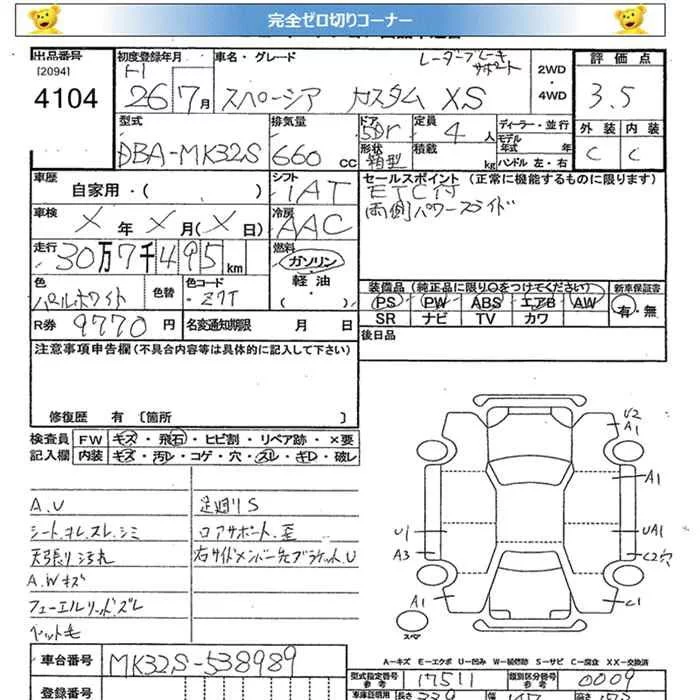 完全ゼロ切りコーナー
出品番号 初度登録年月 車名・グレード レーダーブレーキサポート 2WD 評価点
[2094] H
4104 26 7月 スペーシア カスタム XS ・4WD 3.5
型式 排気量 ドア 定員 ディーラー・並行 外装 内装
DBA-MK32S 660 CC 5Dr 4人 モデル年式 年 C C
形状 箱型 積載 kg ハンドル 左・右
車歴 シフト セールスポイント (正常に機能するものに限ります)
自家用・( ) IAT ETC付
車検 X年 X月(X日) 冷房 AAC 両側パワースライド
走行 30万7千495km 燃料 ガソリン
色 色替 色コード 軽油 装備品 (純正品に限り○をつけてください) 新車保証書
パールホワイト ・Z7T ・( ) PS PW ABS エアB AW 有・無
R券 9770円 名変通知期限 月 日 SR ナビ TV カワ
注意事項申告欄(不具合内容等は具体的に記入して下さい) 後日品
修復歴 有 〔箇所 〕
検査員 FW キズ・飛石・ヒビ割・リペア跡・×要
記入欄 内装 キズ・汚レ・コゲ・穴・スレ・キD・破レ
A.U 足廻りS
シートヨレ.スレ.シミ コアサポート.歪
天張り汚れ 右サイドメンバー先ブラケット.U
A.Wキズ
フューエルリッドズレ
ペット毛
U2
A1
A1
U1 UA1
A3 C2穴
A1 C1
スペア
A-キズ E-エクボ U-凹み W-補修跡 S-サビ C-腐食 XX-交換済
車台番号 MK32S-538989
型式指定番号 参考 17511 類別区分番号 参考 0009
登録番号 車庫証明用 長さ 339 幅